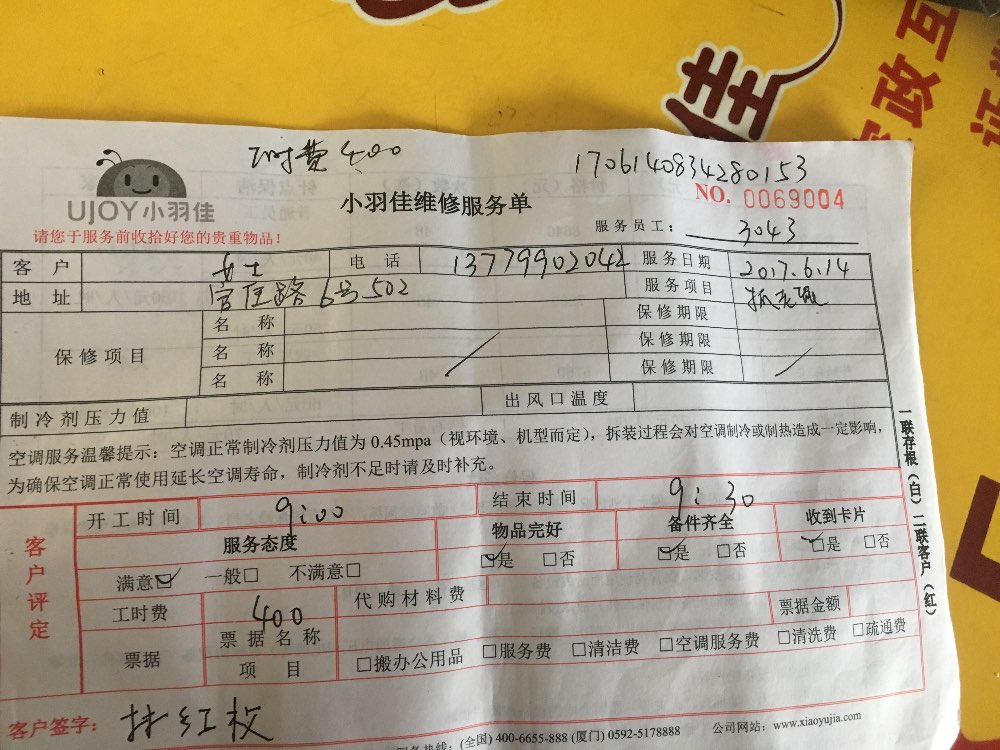 佳
家政互
工时费400
1706140834280153
UJOY小羽佳
小羽佳维修服务单
NO. 0069004
请您于服务前收拾好您的贵重物品！
服务员工： 3043
客户 女士 电话 13779902042 服务日期 2017.6.14
地址 官任路6号502 服务项目
保修项目 名称 保修期限
名称 保修期限
名称 保修期限
制冷剂压力值 出风口温度
空调服务温馨提示：空调正常制冷剂压力值为 0.45mpa（视环境、机型而定），拆装过程会对空调制冷或制热造成一定影响，
为确保空调正常使用延长空调寿命，制冷剂不足时请及时补充。
一联存根（白）二联客户（红）
客户评定
开工时间 9:00 结束时间 9:30
服务态度 物品完好 备件齐全 收到卡片
满意☑ 一般□ 不满意□ ☑是 □否 ☑是 □否 ☑是 □否
工时费 400 代购材料费 票据金额
票据 票据名称
项目 □搬办公用品 □服务费 □清洁费 □空调服务费 □清洗费 □疏通费
客户签字： 林红枚
服务热线：(全国) 400-6655-888 (厦门) 0592-5178888 公司网站：www.xiaoyujia.com